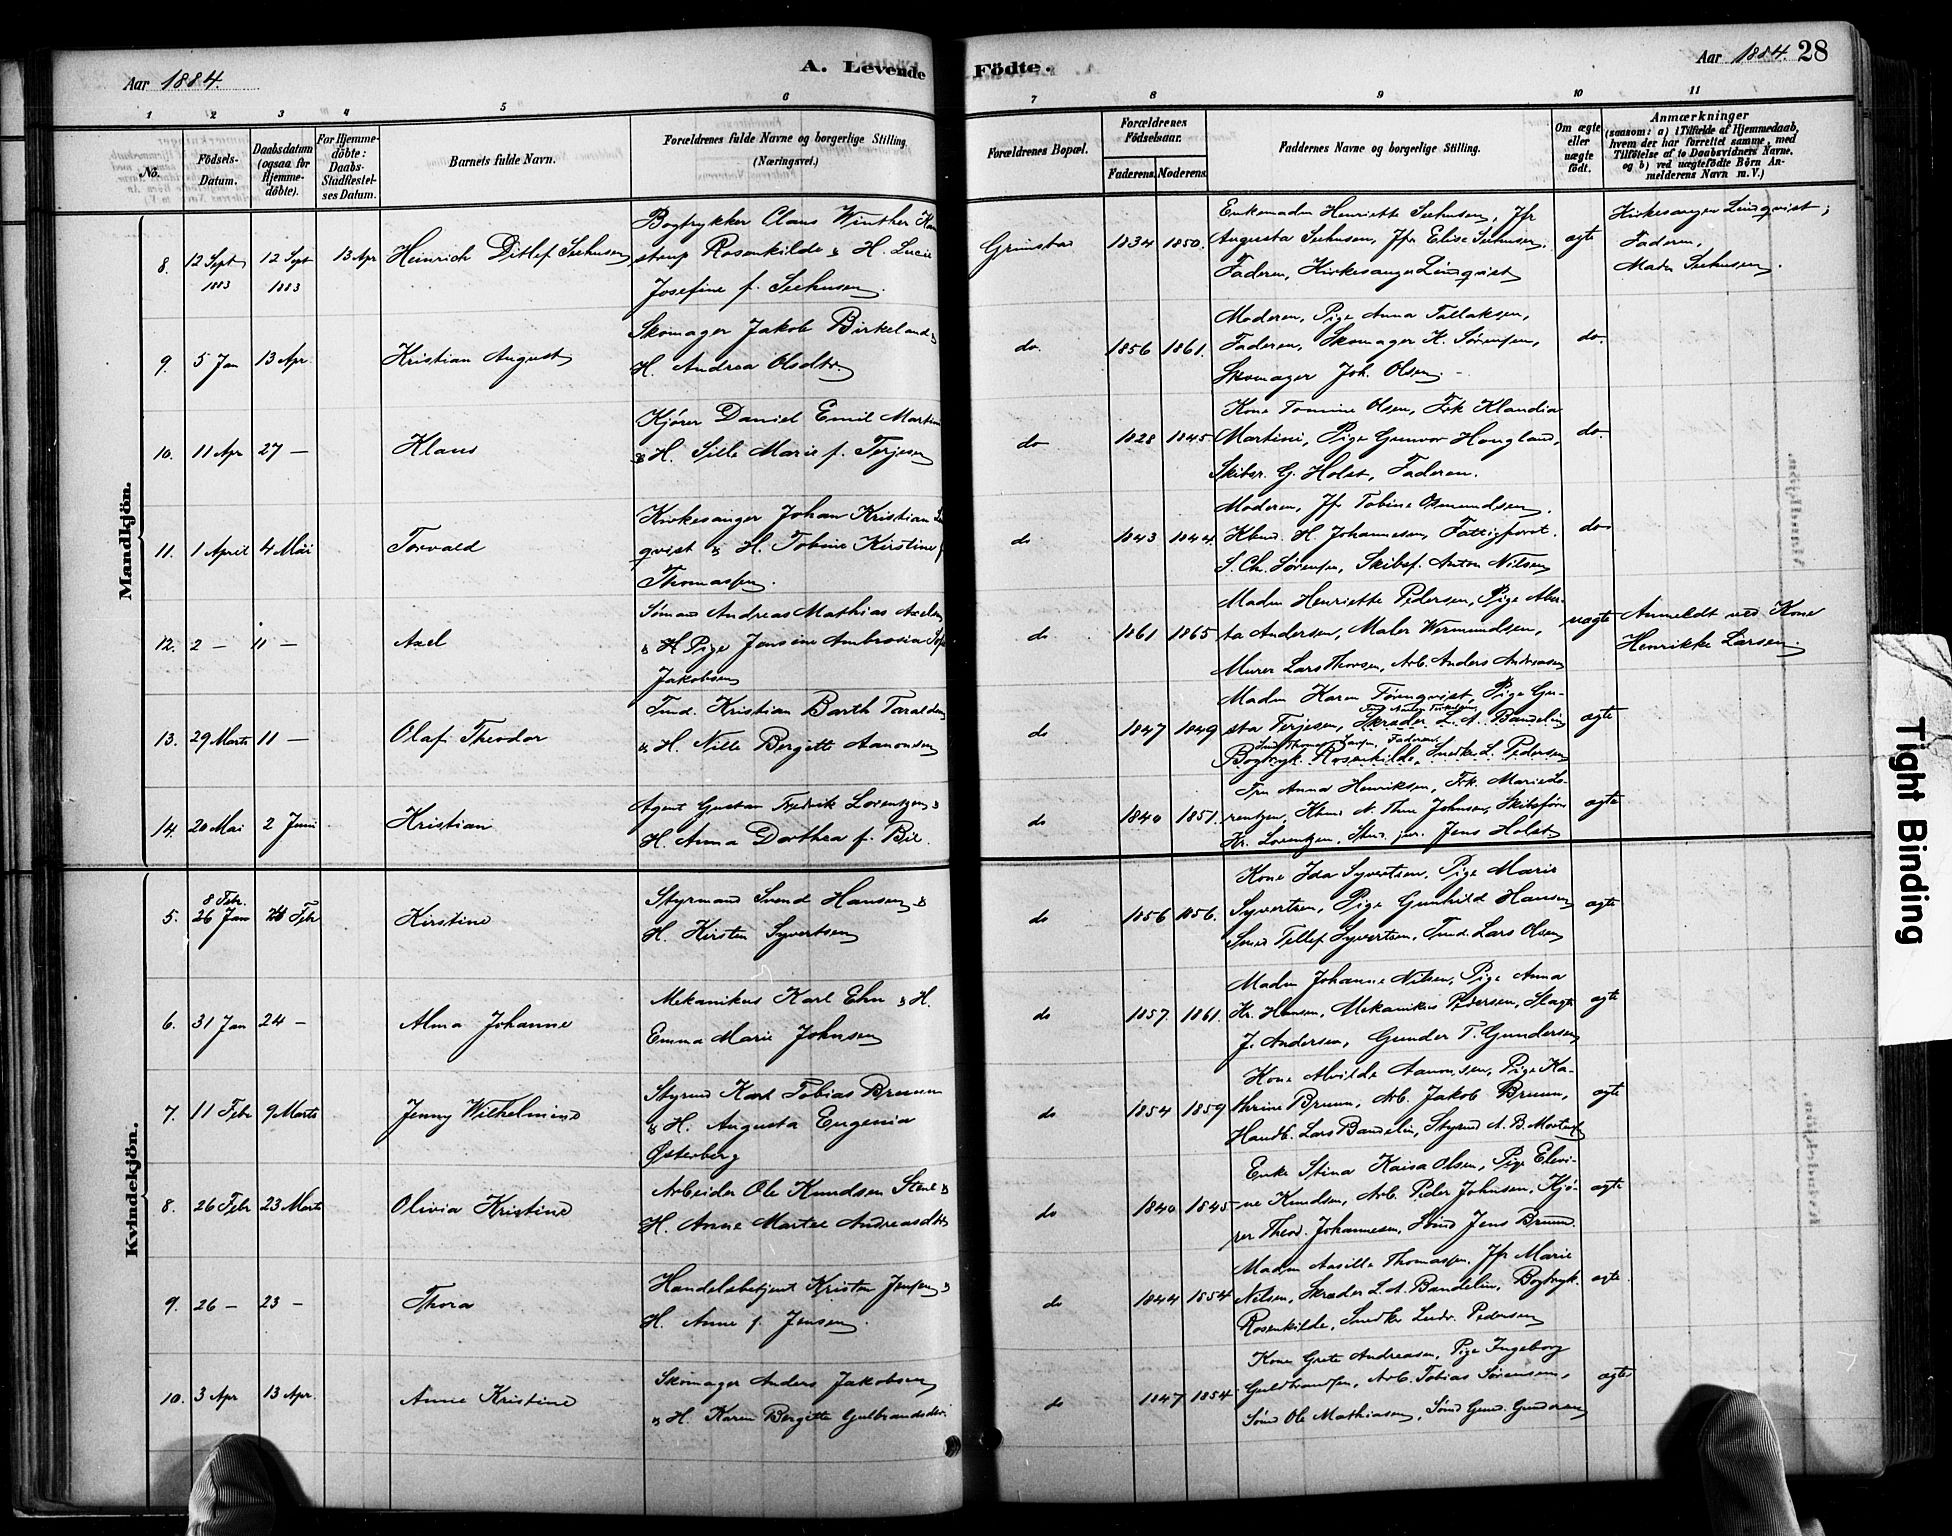 Aar 1884.
A. Levende Födte.
Aar 1884. 28
1 2 3 4 5 6 7 8 9 10 11
No.
Födsels-Datum.
Daabsdatum (ogsaa för Hjemmedöbte).
For Hjemmedöbte: Daabs-Stadfæstelses Datum.
Barnets fulde Navn.
Forældrenes fulde Navne og borgerlige Stilling (Næringsvei.)
Forældrenes Bopæl.
Forældrenes Födselsaar.
Faderens. Moderens.
Faddernes Navne og borgerlige Stilling.
Om ægte eller uægte född.
Anmærkninger
(saasom: a) i Tilfælde af Hjemmedaab, hvem der har forrettet samme, med Tilföielse af to Daabsvidners Navne. og b) ved uægtefödte Börn Anmelderens Navn m. V.)
Mandkjön.
8. 12 Sept 1883 12 Sept 1883 13 Apr Heinrich Ditlef Seehusen
Bogtrykker Claus Winther
strup Rosenkilde & H. Lucie
Josefine f. Seehusen.
Grimstad 1834 1850.
Enkemadm Henriette Seehusen, Jfr
Augusta Seehusen, Jfr Elise Seehusen.
Faderen, Kirkesanger Lindqvist
ægte
Kirkesanger Lindqvist;
Faderen,
Madm Seehusen.
9. 5 Jan 13 Apr. Kristian August
Skomager Jakob Birkeland &
H. Andrea Olsdtr
do. 1856 1861.
Moderen, Pige Anna Tallaksen,
Faderen, Skomager K. Sørensen,
Skomager Joh. Olsen.
do.
10. 11 Apr 27 — Klaus
Kjører Daniel Emil Martini
& H. Sille Marie f. Terjesen
do 1828 1845
Kone Tomine Olsen, Frk Klandia
Martini, Pige Gunvor Hougland,
Skibsr. G. Holst, Faderen.
do.
11. 1 April 4 Mai Torvald
Kirkesanger Johan Kristian
qvist & H. Tobine Kirstine f
Thomassen.
do 1843 1844.
Moderen, Jfr Tobine Osmundsen,
Kbmd. H. Johannesen, Fattigforst.
S. Chr. Sørensen, Skibsf. Anton Nilsen
do
12. 2 — 11 — Axel
Sømand Andreas Mathias Axelsen
& H Pige Jensine Ambrosia
Jakobsen
do 1861 1865
Madm Henriette Pedersen, Pige Alber-
ta Andersen, Maler Wermundsen,
Murer Lars Thorsen, Arb. Anders Andreasen
uægte
Anmeldt ved Kone
Henrikke Larsen.
13. 29 Marts 11 — Olaf Theodor
Tmd. Kristian Barth Taraldsen
& H. Nille Bergitte Aanonsen
do 1847 1849
Madm Karen Tørnqvist, Pige Gu-
sta Terjesen, Skræder L. A. Bandelin
Bogtryk. Rosenkilde, Snedker L. Pedersen
ægte
14. 20 Mai 2 Juni Kristian
Agent Gustav Fredrik Lorentzen &
H. Anna Dorthea f. Bie.
do 1840 1851.
Fru Anna Henriksen, Frk. Marie Lo-
rentzen, Kbmd A. Thue Johnsen, Skibsfører
Kr. Lorentzen, Stud. jur. Jens Holst.
ægte
Kvindekjön.
5. 8 Febr. 26 Jan 24 Febr Kirstine
Styrmand Svend Hansen &
H. Kirsten Syvertsen
do 1856 1856.
Kone Ida Syvertsen, Pige Marie
Syvertsen, Pige Gunhild Hansen
Sømd Tellef Syvertsen, Tmd. Lars Olsen
ægte
6. 31 Jan 24 — Alma Johanne
Mekanikus Karl Ehn & H.
Emma Marie Johnsen
do 1857. 1861.
Madm Johanne Nilsen, Pige Anna
Kr. Hansen, Mekanikus Pedersen, Slagt.
J. Andersen, Gunder T. Gundersen
ægte
7. 11 Febr 9 Marts Jenny Wilhelmine
Styrmd Karl Tobias Bruun
& H. Augusta Eugenia
Østerberg
do 1854 1859
Kone Alvilde Aanonsen, Pige Ka-
thrine Bruun, Arb. Jakob Bruun,
Handb. Lars Bandelin, Styrmd A. B.
ægte
8. 26 Febr 23 Marts Olivia Kristine
Arbeider Ole Knudsen Stene &
H. Anne Martee Andreasdtr
do 1840 1845
Enke Stina Kaisa Olsen, Pige Elevi-
ne Knudsen, Arb. Peder Johnsen, Kjø-
rer Theod. Johannesen, Sømd Jens Bruun.
ægte
9. 26 — 23 — Thora
Handelsbetjent Kristen Jensen &
H. Anne f. Jensen.
do 1844 1854
Madm Aasille Thomassen, Jfr Marie
Nilsen, Skræder L. A. Bandelin, Bogtryk.
Rosenkilde, Snedker Ludv. Pedersen
ægte.
10. 3 Apr 13 Apr. Anne Kristine
Skomager Anders Jakobsen
& H. Karen Bergitte Gulbrandsdtr.
do 1847 1854
Kone Grete Andreasen, Pige Ingeborg
Guldbrandsen, Arb. Tobias Sørensen,
Sømd Ole Mathiasen, Sømd Gund. Gundersen
ægte
Tight Binding